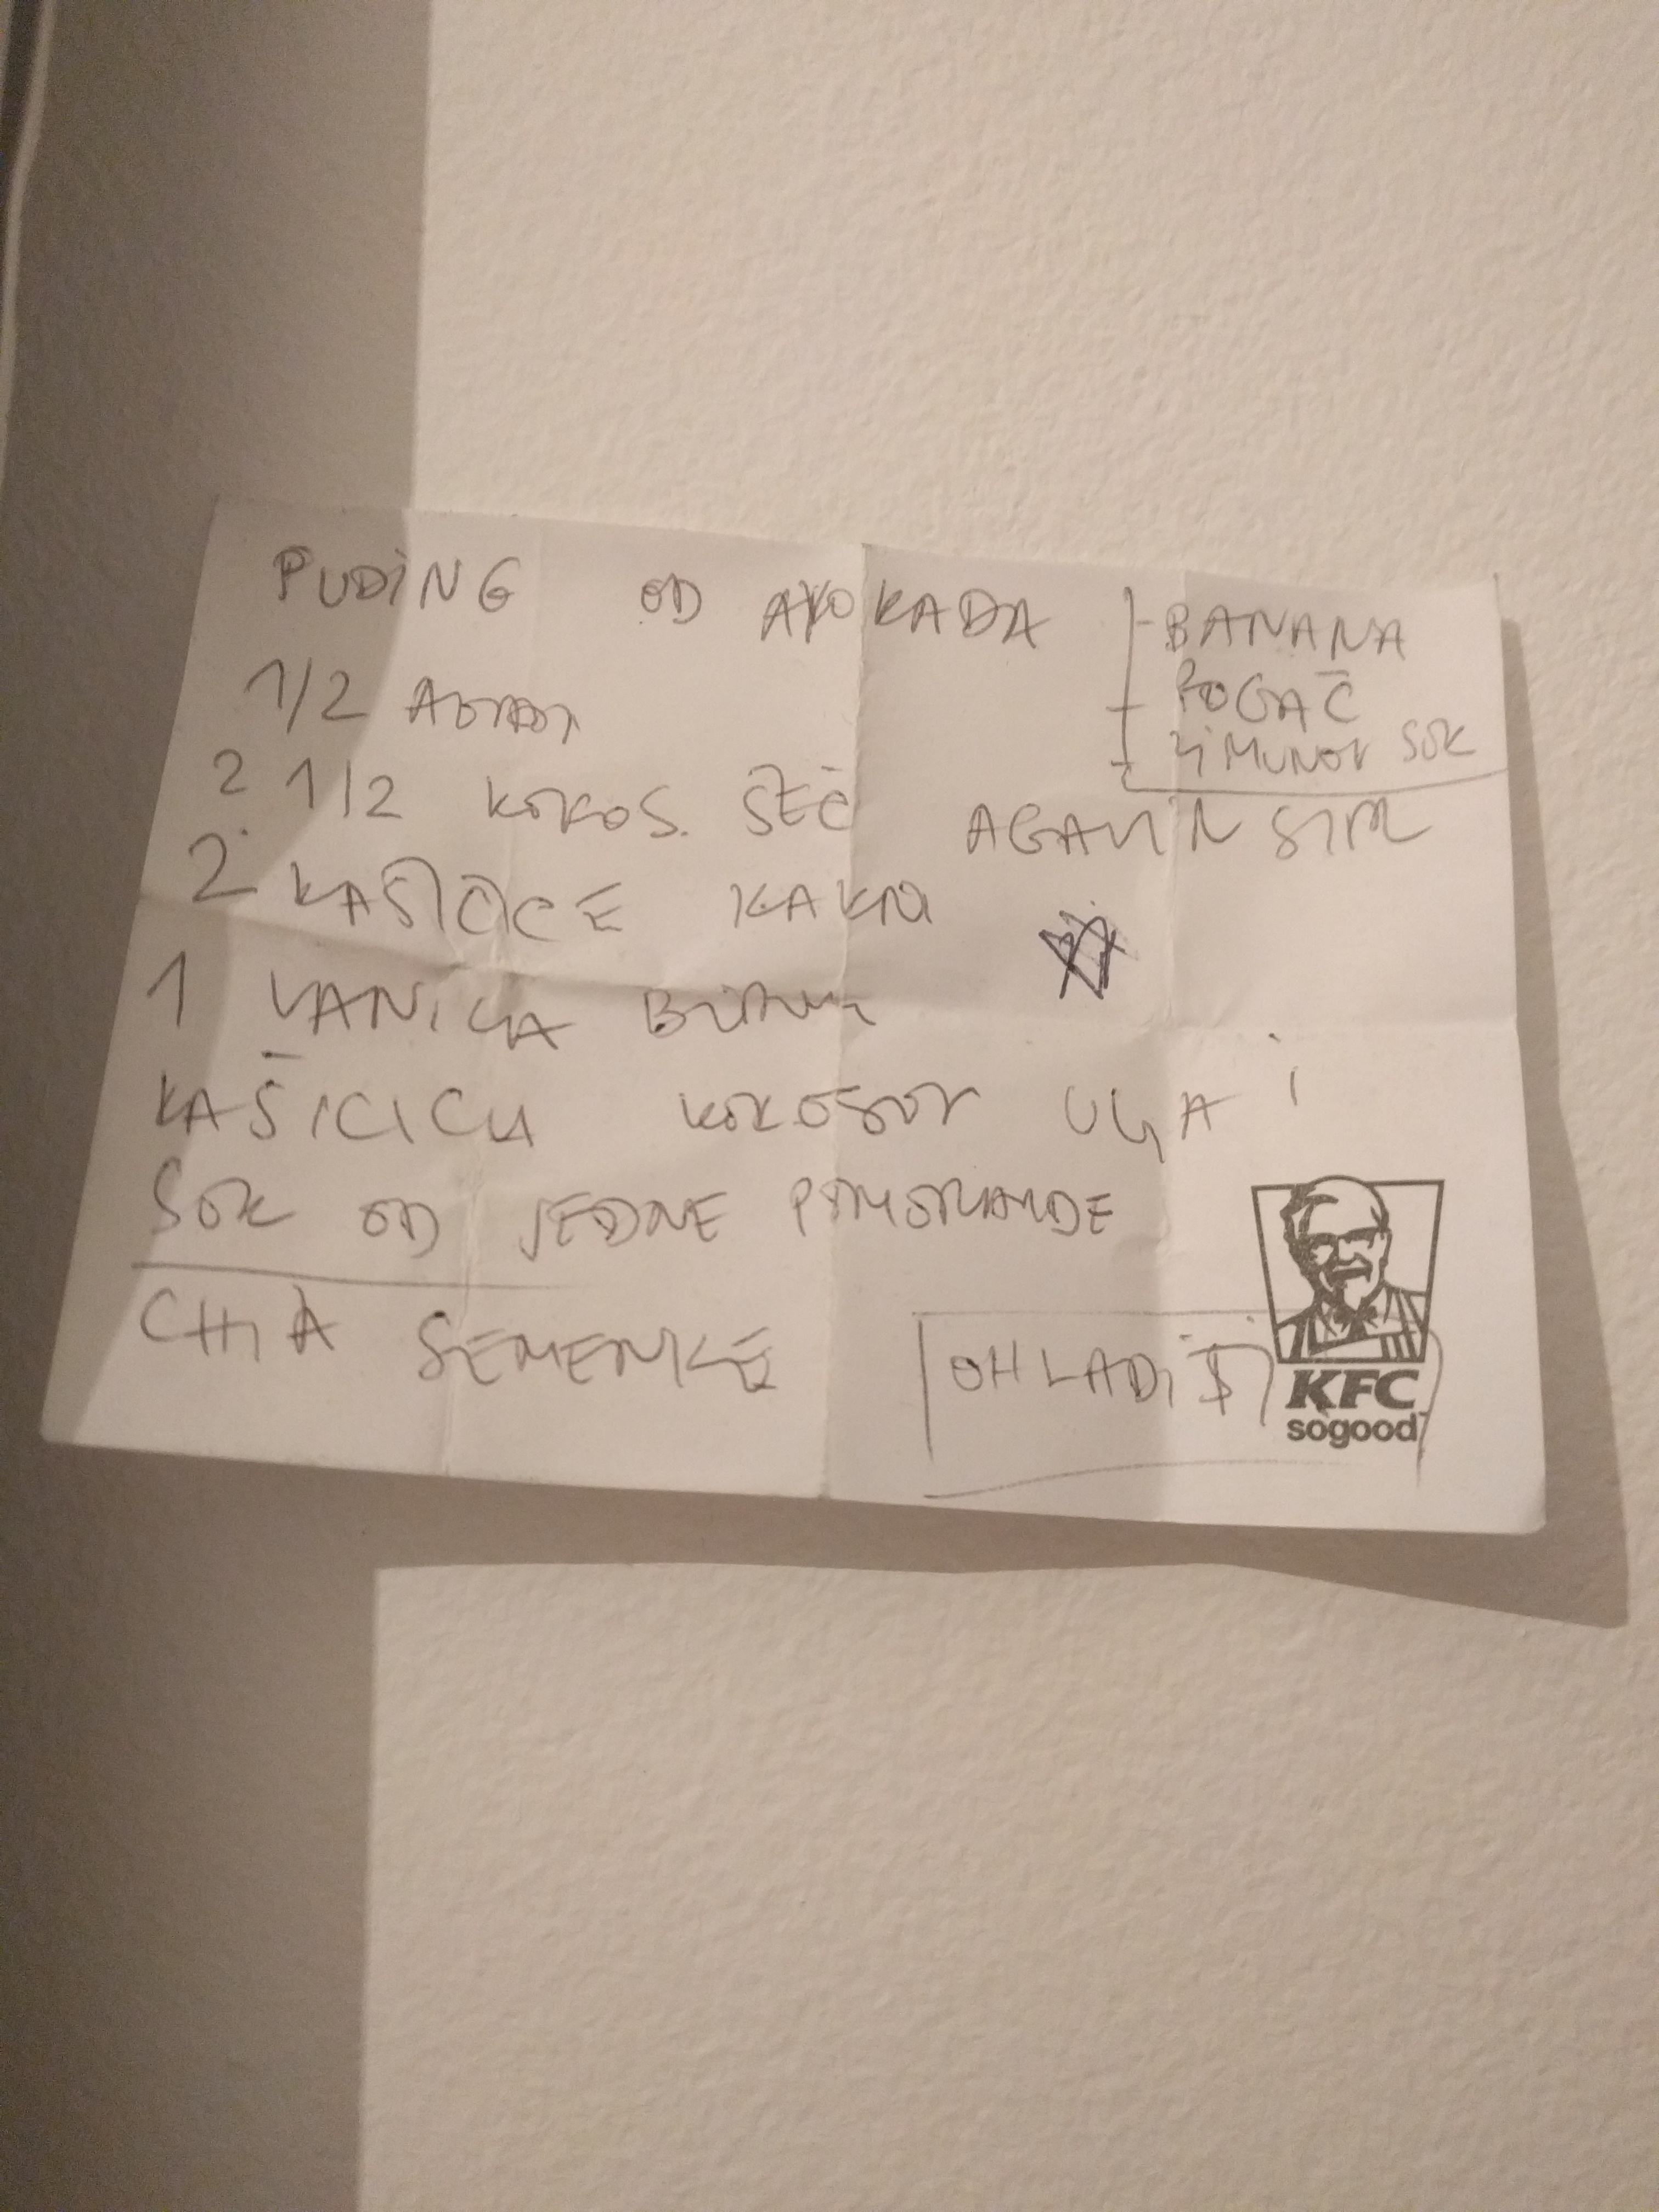 PUDING OD AVOKADA
1/2
2 1/2 KOKOS. ŠEĆ
2 KAŠIČICE KAKAO
1 VANILIJA
KAŠIČICU KOKOSOV ULJA i
SOK OD JEDNE POMORANDE
CHIA SEMENKE
- BANANA
- ROGAČ
- LIMUNOV SOK
AGAVIN SIRUP
OHLADITI
KFC
sogood